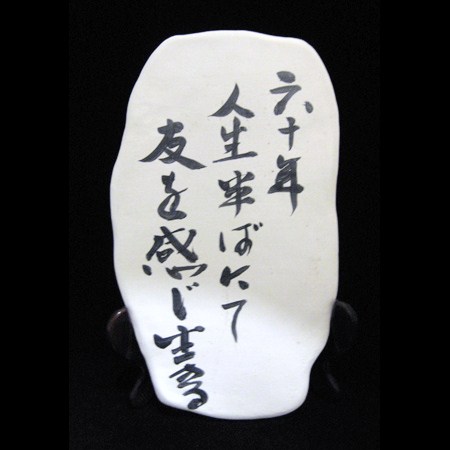 六十年
人生半ばにて
友を感じ生きる